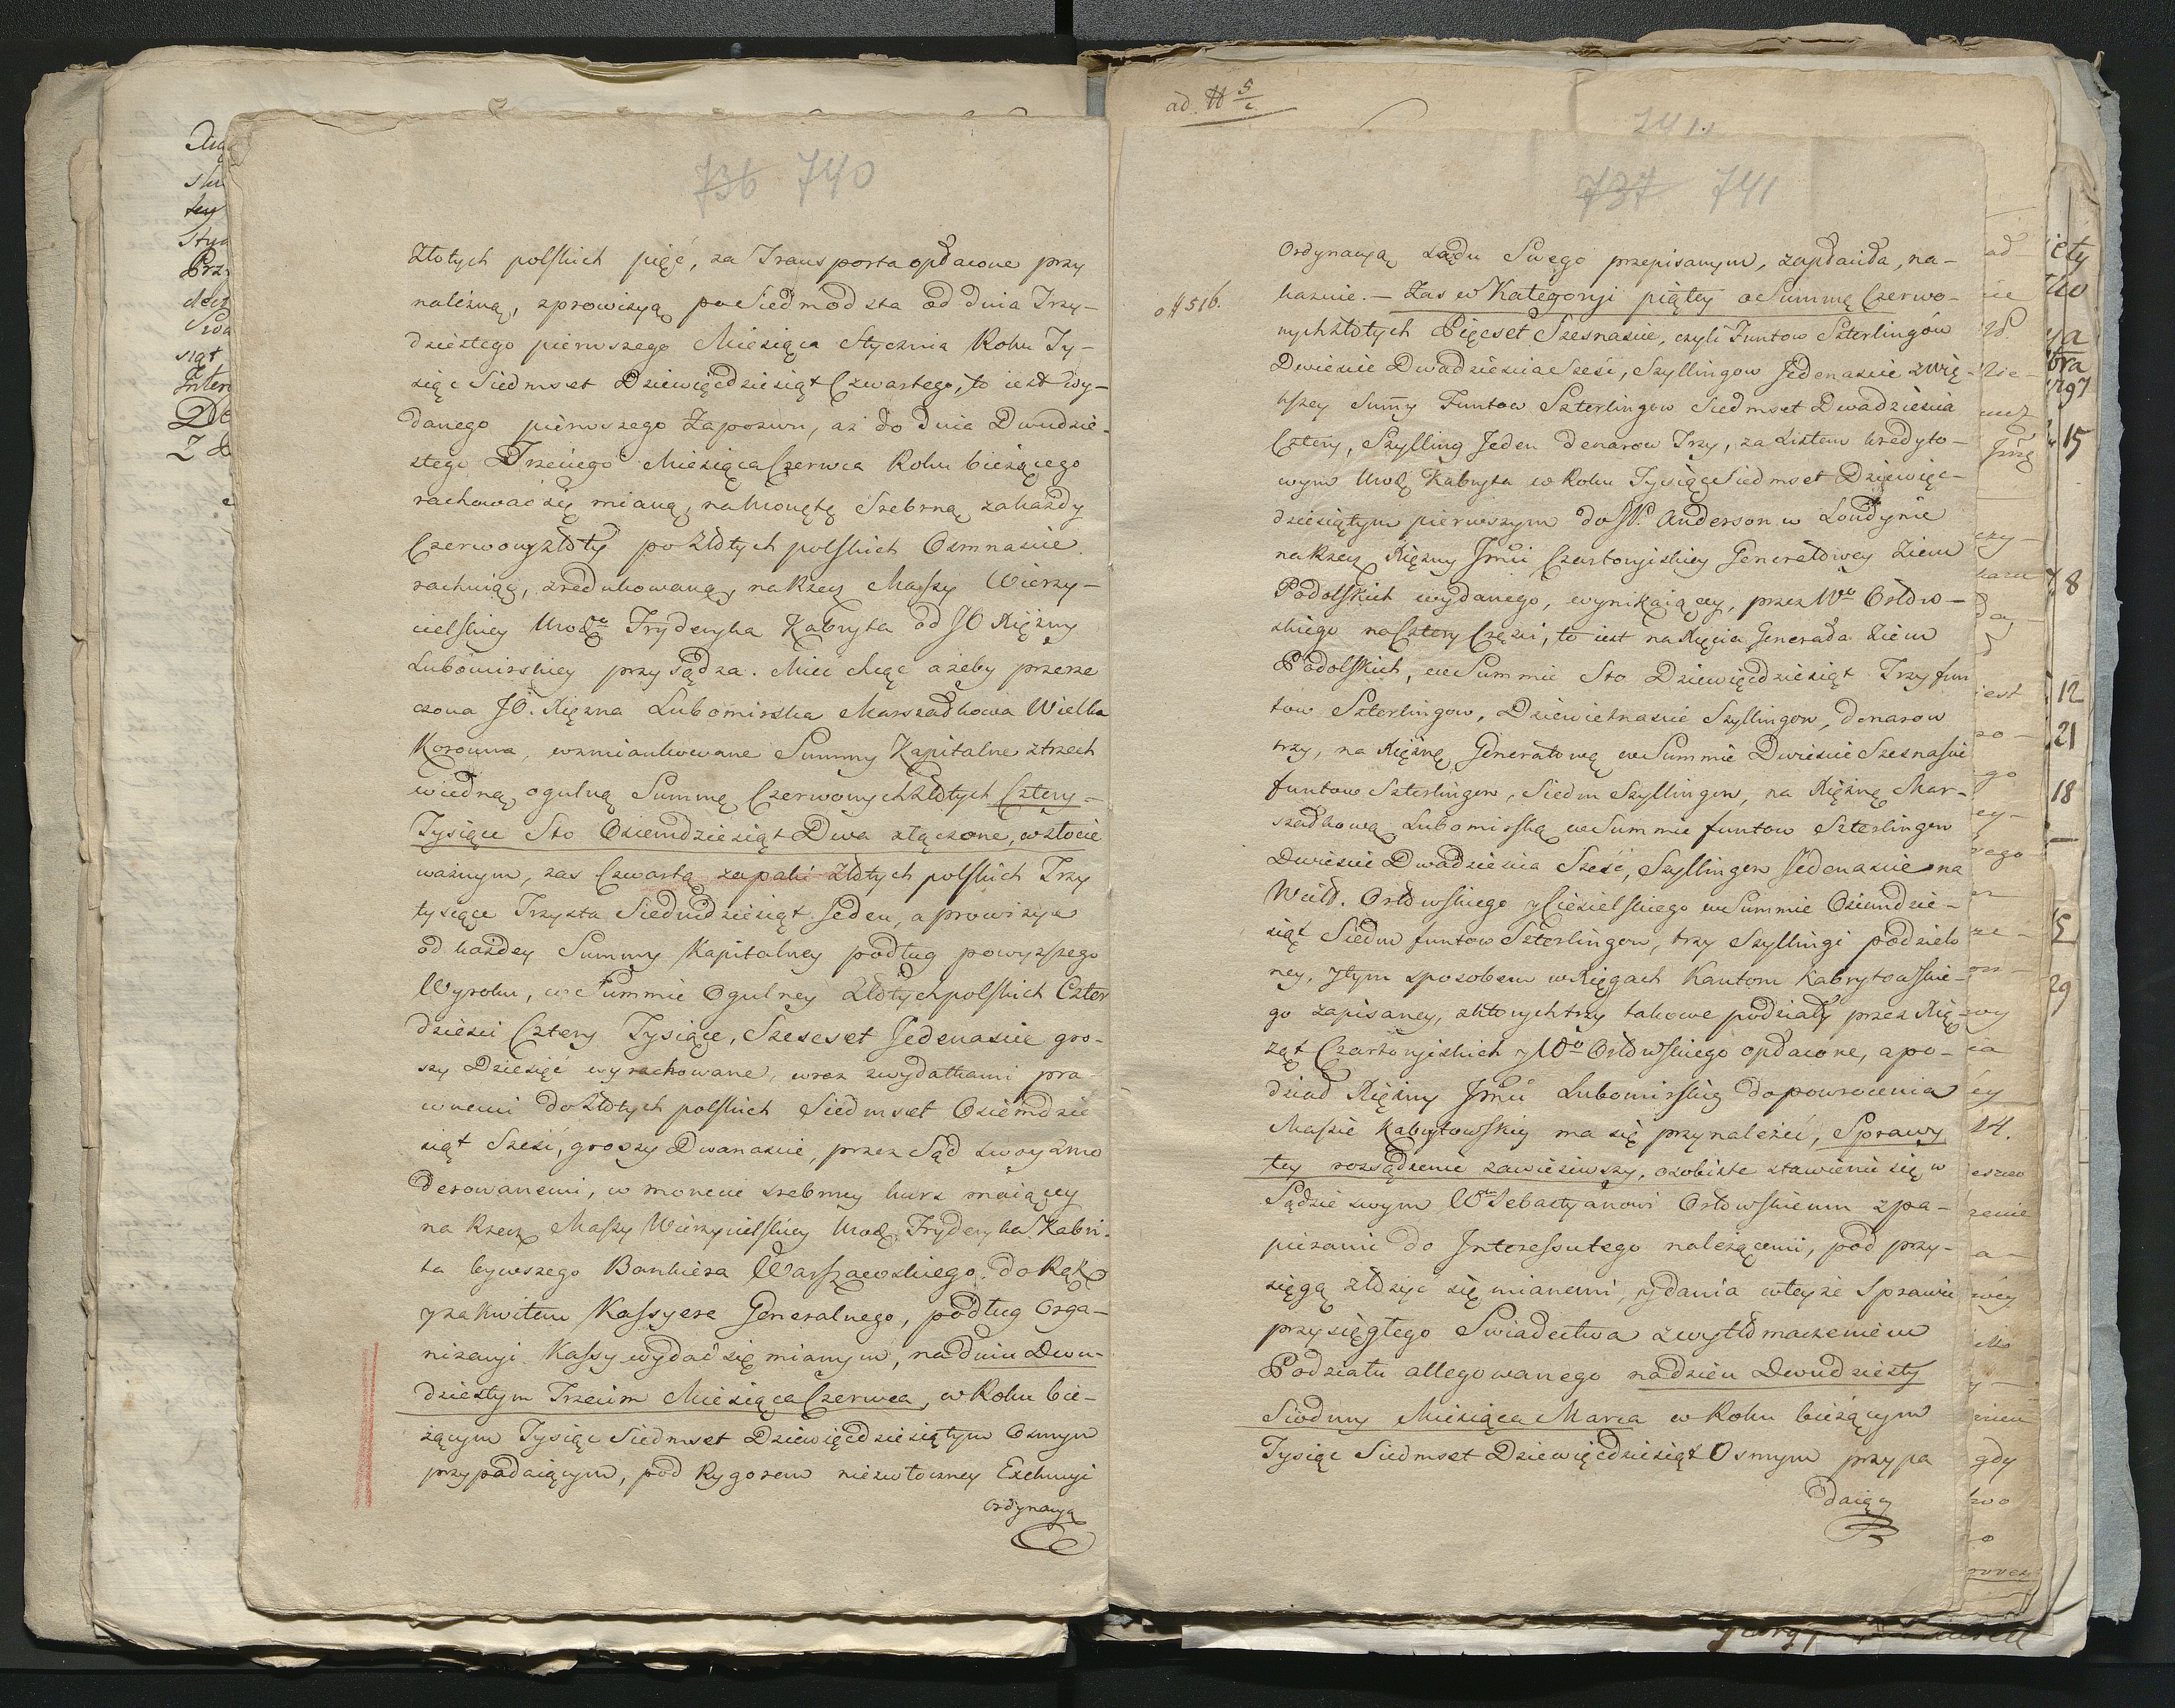 736 740
Złotych polskich pięć, za Transporta opłacone przy
należną, zprowizyą po Siedm od sta od dnia Trzy-
dziestego pierwszego Miesiąca Stycznia Roku Ty-
siąc Siedmset Dziewięćdziesiąt Czwartego, to iest wy-
danego pierwszego Zapozwu, aż do dnia Dwudzie-
stego Trzeciego Miesiąca Czerwca Roku bieżącego
rachować się mianą, na Monętę Srebrną za każdy
Czerwony złoty po Złotych polskich Osmnaście
rachuiąc, zredukowaną, na Rzecz Massy Wierzy-
cielskiey Urodz. Fryderyka Kabryta od JO Xiężny
Lubomirskiey przysądza. Mieć chcąc ażeby przerze
czona JO. Xiężna Lubomirska Marszałkowa Wielka
Koronna, wzmiankowane Summy Kapitalne ztrzech
wiedną ogulną Summę Czerwonych Złotych Cztery-
Tysiące Sto Osiemdziesiąt Dwa złączone, w złocie
ważnym, zas Czwartą zapali Złotych polskich Trzy
tysiące Trzysta Siedmdziesiąt Jeden, a prowizye
od każdey Summy Kapitalney podług powyższego
Wyroku, w Summie Ogulney Złotych polskich Czter
dzieści Cztery Tysiące, Szeset Jedenaście gro-
szy Dziesięć wyrachowane, wraz zwydatkami pra-
wnemi do Złotych polskich Siedmset Osiemdzie
siąt Sześć, groszy Dwanaście, przez Sąd swoy zmo
derowanemi, w monecie srebrney kurs maiącey
na Rzecz Massy Wierzycielskiey Urodz. Fryderyka Kabri-
ta bywszego Bankiera Warszawskiego do Rąk
y za kwitem Kassyera Generalnego, podług Orga-
nizacyi Kassy wydać się mianym, na dniu Dwu-
dziestym Trzecim Miesiąca Czerwca, w Roku bie-
żącym Tysiąc Siedmset Dziewięćdziesiątym Osmym
przypadaiącym, pod Rygorem niezwłoczney Exekucyi
Ordynacyą
ad
741.
737 741
Ordynacyą Sądu Swego przepisanym, zapłaciła, na-
kazuie. - Zas w Kategoryi piątey o Summę Czerwo-
o # 516.
nych złotych Pięćset Szesnaście, czyli Funtow Szterlingów
Dwieście Dwadzieścia Sześć, Szyllingow Jedenaście zwię-
kszey Summy Funtow Szterlingow Siedmset Dwadzieścia
Cztery, Szylling Jeden denarow Trzy, za Listem kredyto-
wym Urodz. Kabryta w Roku Tysiąc Siedmset Dziewięć-
dziesiątym pierwszym do P. Anderson w Londynie
na Rzecz Xiężny Jmci Czartoryiskiey Generałowey Ziem
Podolskich wydanego, wynikaiącey, przez W° Orłow-
skiego na Cztery Części, to iest na Xięcia Generała Ziem
Podolskich, w Summie Sto Dziewięćdziesiąt Trzy fun
tow Szterlingow, Dziewietnaście Szyllingow, denarow
trzy, na Xiężnę Generałową w Summie Dwieście Szesnaście
funtow Szterlingow, Siedm Szyllingow, na Xiężnę Mar-
szałkową Lubomirską w Summie funtow Szterlingow
Dwieście Dwadzieścia Sześć, Szyllingow Jedenaście na
Wielb. Orłowskiego y Ciesielskiego w Summie Osiemdzie-
siąt Siedm funtow Szterlingow, trzy Szyllingi podzielo
ney, y tym sposobem w Xięgach Kantoru Kabrytowskie-
go zapisaney, z których trzy takowe podziały przez Xię
żąt Czartoryiskich y W° Orłowskiego opłacone, a po-
dział Xiężny Jmci Lubomirskiey do powrocenia
Massie Kabrytowskiey ma się przynależeć, Sprawy
tey rozsądzenie zawiesiwszy, osobiste stawienie się w
Sądzie swym W° Sebastyanowi Orłowskiemu z pa-
pierami do Interessu tego należącemi, pod przy-
sięgą złożyć się mianemi, y dania w teyże Sprawie
przysięgłego Swiadectwa z wytłomaczeniem
Podziału allegowanego na dzień Dwudziesty
Siodmy Miesiąca Marca w Roku bieżącym
Tysiąc Siedmset Dziewięćdziesiąt Osmym przypa
daiący
15
8
12
21
18
29
24.
gdy